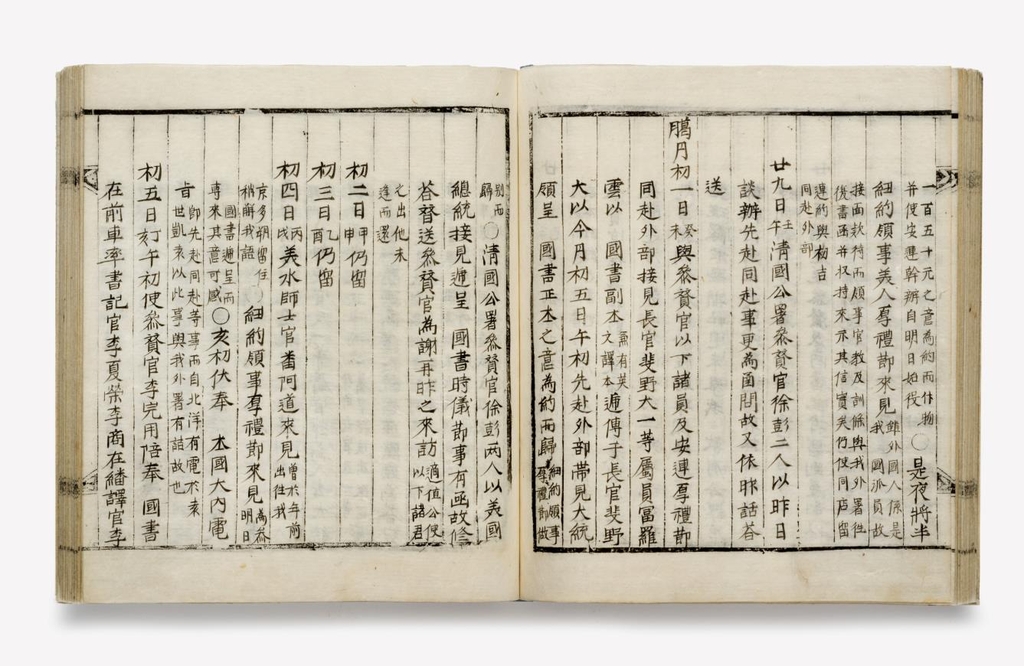 一百五十元之意為約而作物　○是夜將半
并使安連幹辦自明日始役
紐約領事美人厚禮節來見 雖外國人係是我國派員故
接面款待而領事官教及訓條與我外署往
復書函并收持來示其信實矣仍使同店留
連約與朸吉
同赴外部
廿九日 壬午 清國公署參贊官徐彭二人以昨日
談辦先赴同赴事更為函問故又依昨話答
送
臈月初一日 癸未 與參贊官以下諸員及安連厚禮節
同赴外部接見長官斐野大一等屬員冨羅
雲以　國書副本 兼有英文譯本 遞傳于長官斐野
大以今月初五日午初先赴外部帶見大統
領呈　國書正本之意為約而歸 紐約領事厚禮節做
別而歸 ○清國公署參贊官徐彭兩人以美國
總統接見遞呈　國書時儀節事有函故修
答督送參贊官為謝再昨之來訪 適值公使以下諸君
之出他未
逢而還
初二日 甲申 仍留
初三日 乙酉 仍留
初四日 丙戌 美水師士官番阿道來見 曾於年前出往我
京多朔留住稍解我語 ○紐約領事厚禮節來見 為參明日
國書遞呈而專來其意可感 ○亥初伏奉　本國大內電
旨 卽先赴同赴等事而自北洋有電於袁
世凱袁以此事與我外署有詰故也
初五日刻午初使參贊官李完用陪奉　國書
在前車率書記官李夏榮李商在繙譯官李